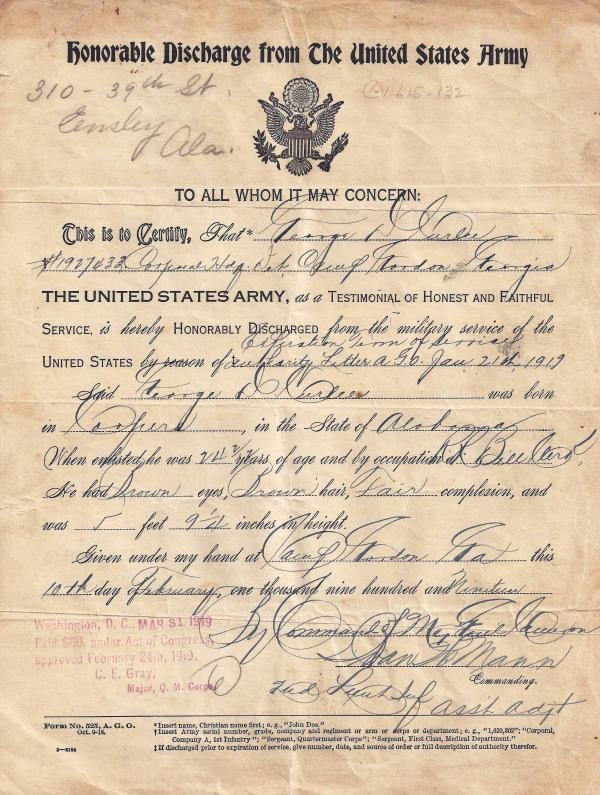 Honorable Discharge from The United States Army
310 - 39th St.
Ensley
Ala.
C-1 615-132
TO ALL WHOM IT MAY CONCERN:
This is to Certify, That* George D
#1927432 Corporal Hdq. Det. Camp Gordon Georgia
THE UNITED STATES ARMY, as a TESTIMONIAL OF HONEST AND FAITHFUL
SERVICE, is hereby HONORABLY DISCHARGED from the military service of the
Expiration term of service
UNITED STATES by reason of‡ authority Letter A.G.O. Jan 21st, 1919
Said George D was born
in Coopers, in the State of Alabama
When enlisted he was 24 years of age and by occupation a R.R. Bill Clerk.
He had Brown eyes, Brown hair, Fair complexion, and
was 5 feet 9 1/4 inches in height.
Given under my hand at Camp Gordon Ga this
10th day of February, one thousand nine hundred and Nineteen
By Command of Maj.
Mann
Commanding.
2nd Lieut. Inf
Asst. Adjt
Washington, D. C., MAR 31 1919
Paid $60. under Act of Congress,
approved February 24th, 1919.
C. E. Gray,
Major, Q. M. Corps
Form No. 525, A. G. O.
Oct. 9-18.
3-3164
*Insert name, Christian name first; e. g., "John Doe."
†Insert Army serial number, grade, company and regiment or arm or corps or department; e. g., "1,620,302"; "Corporal,
Company A, 1st Infantry"; "Sergeant, Quartermaster Corps"; "Sergeant, First Class, Medical Department."
‡If discharged prior to expiration of service, give number, date, and source of order or full description of authority therefor.